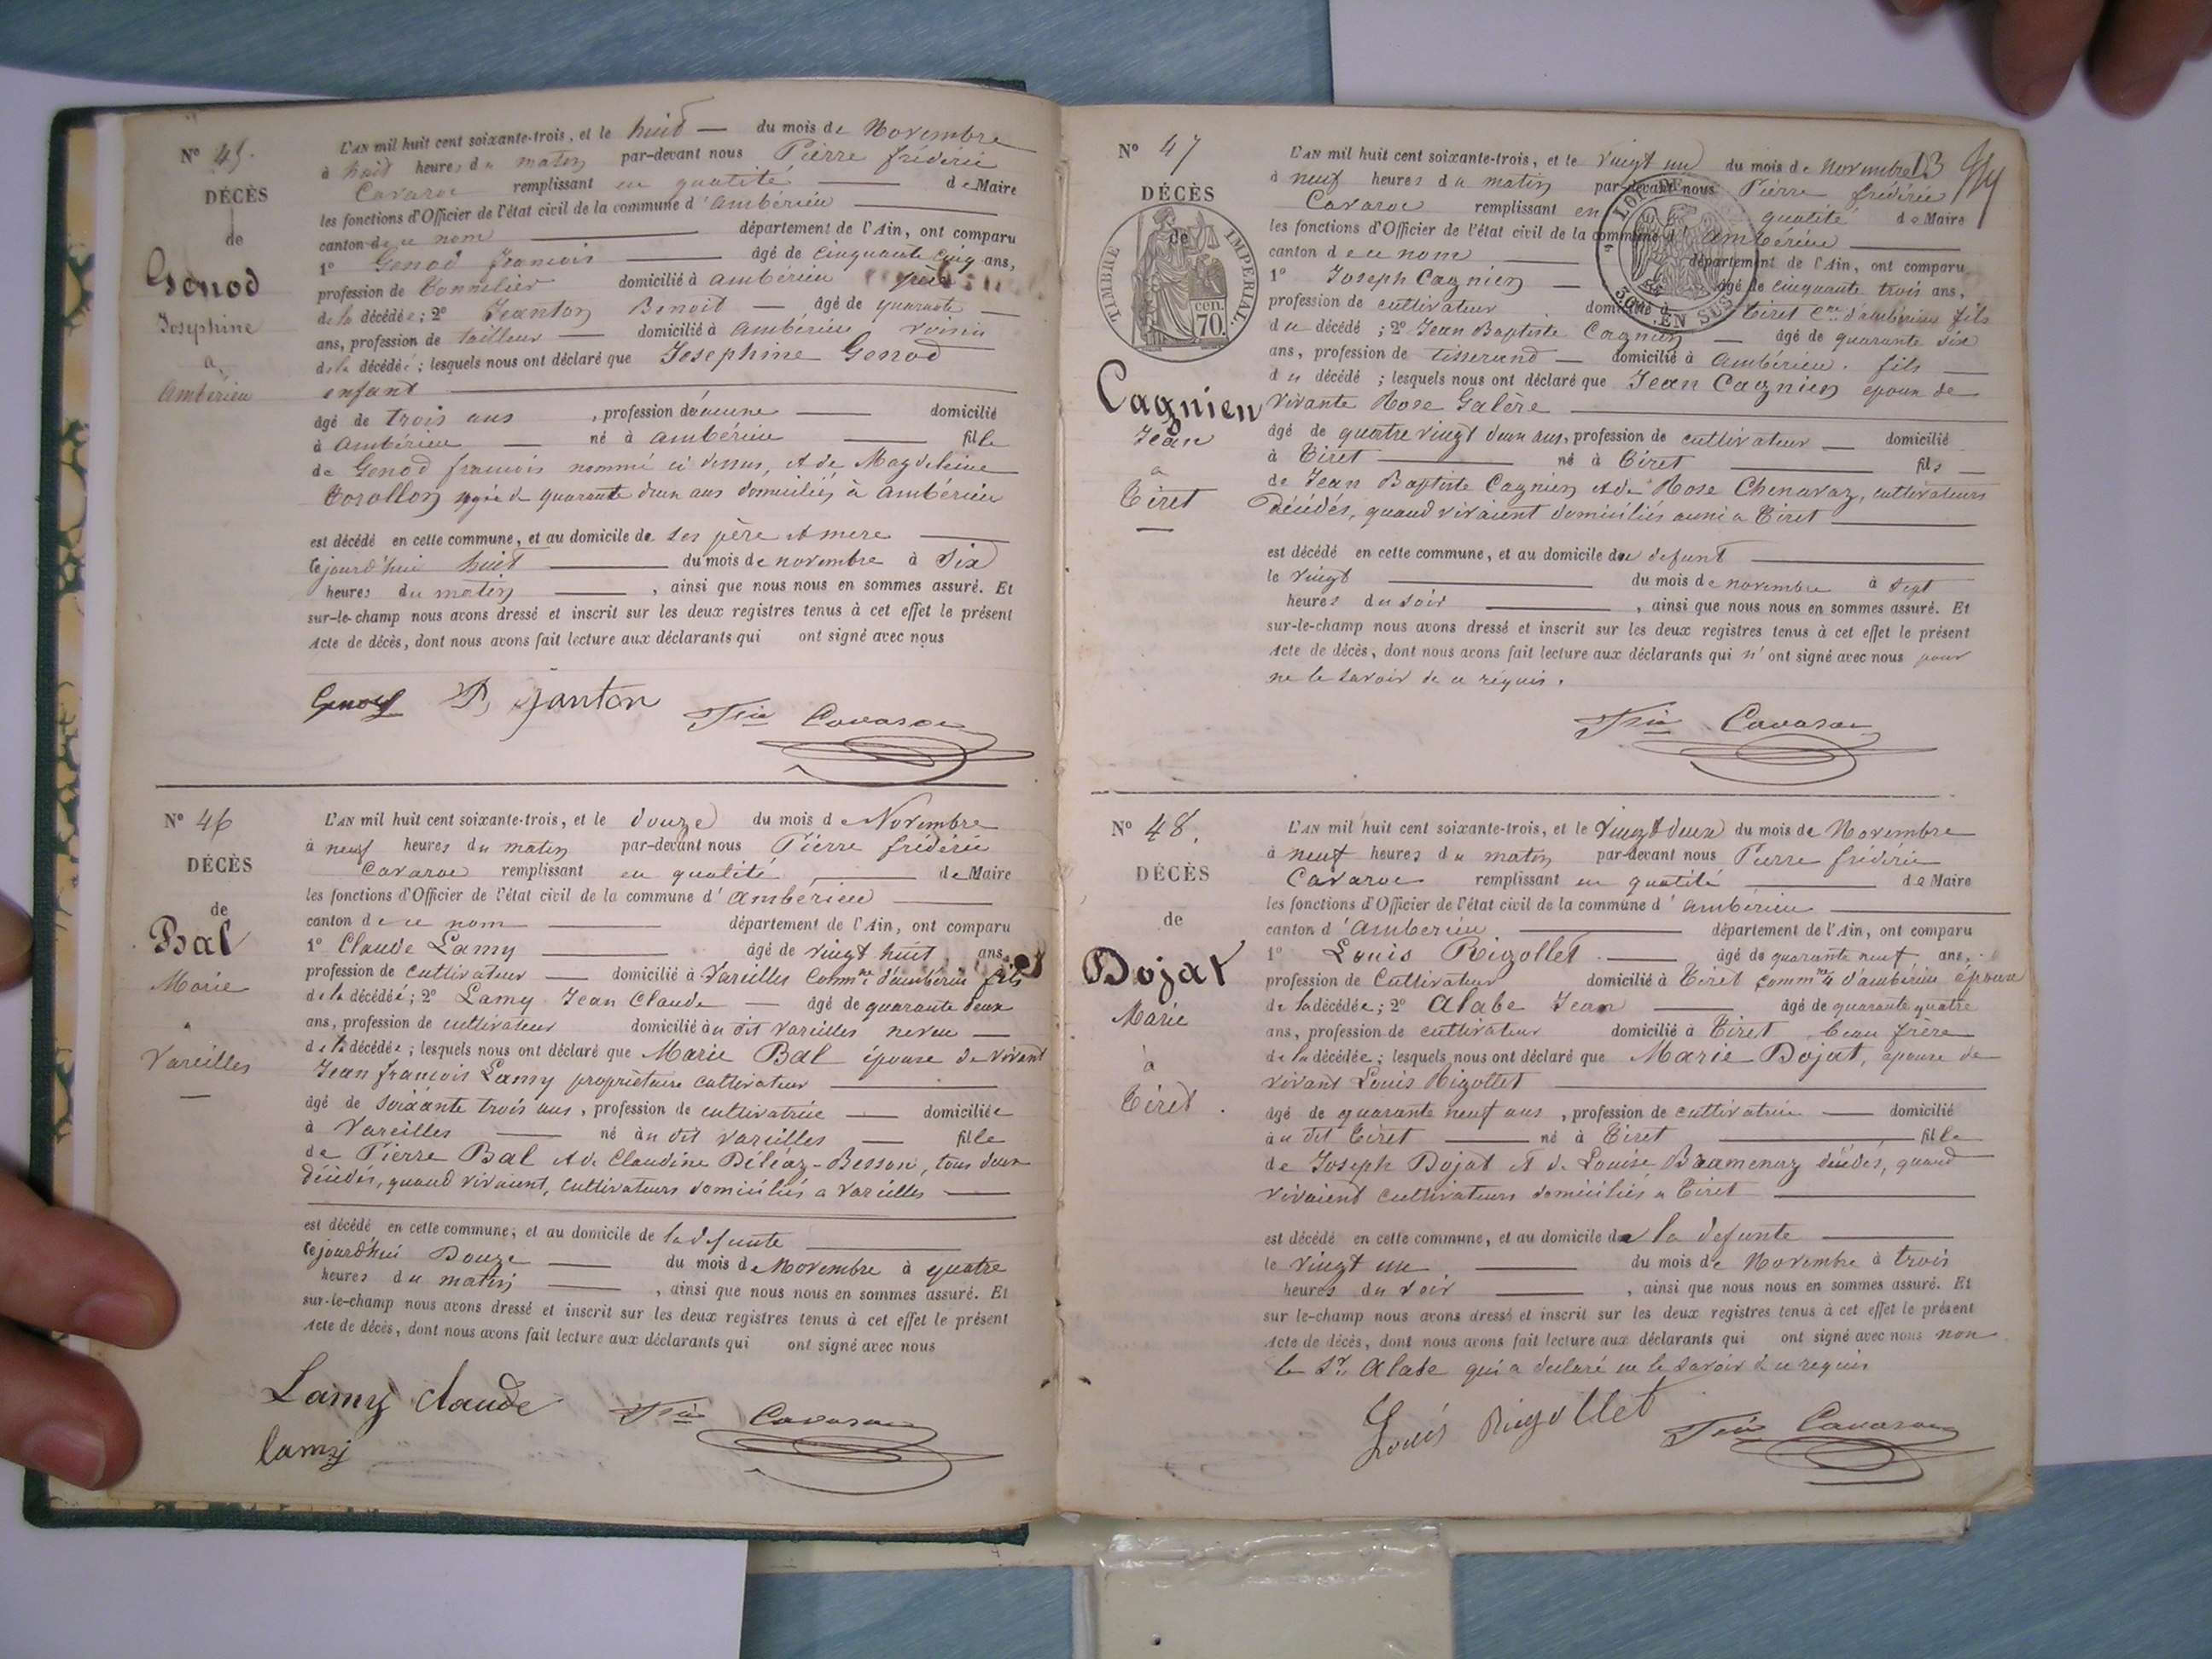 N° 45.
DÉCÈS
de
Genod
Josephine
a
Ambérieu
L'AN mil huit cent soixante-trois, et le huit du mois de Novembre
à huit heures du matin par-devant nous Pierre frédéric
Cavaroc remplissant en qualité de Maire
les fonctions d'Officier de l'état civil de la commune d'ambérieu
canton de ce nom département de l'Ain, ont comparu
1° Genod francois âgé de cinquante cinq ans,
profession de Tonnelier domicilié à ambérieu père
de la décédée; 2° Jeanton Benoit âgé de quarante
ans, profession de tailleur domicilié à ambérieu voisin
de la décédée; lesquels nous ont déclaré que Josephine Genod
enfant
âgé de trois ans, profession d'aucune domicilié
à ambérieu né à ambérieu fille
de Genod francois nommé ci dessus, et de Magdeleine
agée de quarante deux ans domiciliés à ambérieu
est décédé en cette commune, et au domicile de ses père et mere
cejourd'hui huit du mois de novembre à six
heures du matin, ainsi que nous nous en sommes assuré. Et
sur-le-champ nous avons dressé et inscrit sur les deux registres tenus à cet effet le présent
Acte de décès, dont nous avons fait lecture aux déclarants qui ont signé avec nous
Genod B, Janton Fric Cavaroc
N° 46
DÉCÈS
de
Bal
Marie
a
Vareilles
L'AN mil huit cent soixante-trois, et le douze du mois de Novembre
à neuf heures du matin par-devant nous Pierre frédéric
Cavaroc remplissant en qualité de Maire
les fonctions d'Officier de l'état civil de la commune d'ambérieu
canton de ce nom département de l'Ain, ont comparu
1° Claude Lamy âgé de vingt huit ans,
profession de cultivateur domicilié à Vareilles Comm.ne d'ambérieu fils
de la décédée; 2° Lamy Jean Claude âgé de quarante deux
ans, profession de cultivateur domicilié au dit vareilles neveu
de la décédée; lesquels nous ont déclaré que Marie Bal épouse de vivant
Jean francois Lamy propriétaire cultivateur
âgé de soixante trois ans, profession de cultivatrice domiciliée
à Vareilles né au dit vareilles fille
de Pierre Bal et de Claudine Déléaz-Besson, tous deux
décédés, quand vivaient, cultivateurs domiciliés a vareilles
est décédé en cette commune, et au domicile de la defunte
cejourd'hui Douze du mois de Novembre à quatre
heures du matin, ainsi que nous nous en sommes assuré. Et
sur-le-champ nous avons dressé et inscrit sur les deux registres tenus à cet effet le présent
Acte de décès, dont nous avons fait lecture aux déclarants qui ont signé avec nous
Lamy claude Fric Cavaroc
lamy
N° 47
DÉCÈS
de
TIMBRE IMPERIAL.
cen.
70.
Cagnien
Jean
a
Tiret
13
L'AN mil huit cent soixante-trois, et le vingt un du mois de novembre
à neuf heures du matin par-devant nous Pierre frédéric
Cavaroc remplissant en qualité de Maire
les fonctions d'Officier de l'état civil de la commune d'ambérieu
canton de ce nom département de l'Ain, ont comparu
EN SUS
1° Joseph Cagnien âgé de cinquante trois ans,
profession de cultivateur domicilié à Tiret C.ne d'ambérieu fils
du décédé; 2° Jean Baptiste Cagnien âgé de quarante six
ans, profession de tisserand domicilié à ambérieu. fils
du décédé; lesquels nous ont déclaré que Jean Cagnien epoux de
vivante Rose Galère
âgé de quatre vingt deux ans, profession de cultivateur domicilié
à Tiret né à Tiret fils
de Jean Baptiste Cagnien et de Rose Chenavaz, cultivateurs
décédés, quand vivaient domiciliés aussi a Tiret
est décédé en cette commune, et au domicile du defunt
le vingt du mois de novembre à sept
heures du soir, ainsi que nous nous en sommes assuré. Et
sur-le-champ nous avons dressé et inscrit sur les deux registres tenus à cet effet le présent
Acte de décès, dont nous avons fait lecture aux déclarants qui n'ont signé avec nous pour
ne le savoir de ce requis.
Fric Cavaroc
N° 48.
DÉCÈS
de
Dojat
Marie
à
Tiret.
L'AN mil huit cent soixante-trois, et le vingt deux du mois de Novembre
à neuf heures du matin par-devant nous Pierre frédéric
Cavaroc remplissant en qualité de Maire
les fonctions d'Officier de l'état civil de la commune d'ambérieu
canton d'ambérieu département de l'Ain, ont comparu
1° Louis Rigollet âgé de quarante neuf ans,
profession de Cultivateur domicilié à Tiret comm.ne d'ambérieu époux
de la décédée; 2° Alabe Jean âgé de quarante quatre
ans, profession de cultivateur domicilié à Tiret beau frère
de la décédée; lesquels nous ont déclaré que Marie Dojat, épouse de
vivant Louis Rigollet
âgé de quarante neuf ans, profession de cultivatrice domicilié
au dit Tiret né à Tiret fille
de Joseph Dojat et de Louise Bramenaz décédés, quand
vivaient cultivateurs domiciliés a Tiret
est décédé en cette commune, et au domicile de la defunte
le vingt un du mois de Novembre à trois
heures du soir, ainsi que nous nous en sommes assuré. Et
sur le-champ nous avons dressé et inscrit sur les deux registres tenus à cet effet le présent
Acte de décès, dont nous avons fait lecture aux déclarants qui ont signé avec nous non
le Sr. Alabe qui a declaré ne le savoir de ce requis
Louis Rigollet Fric Cavaroc